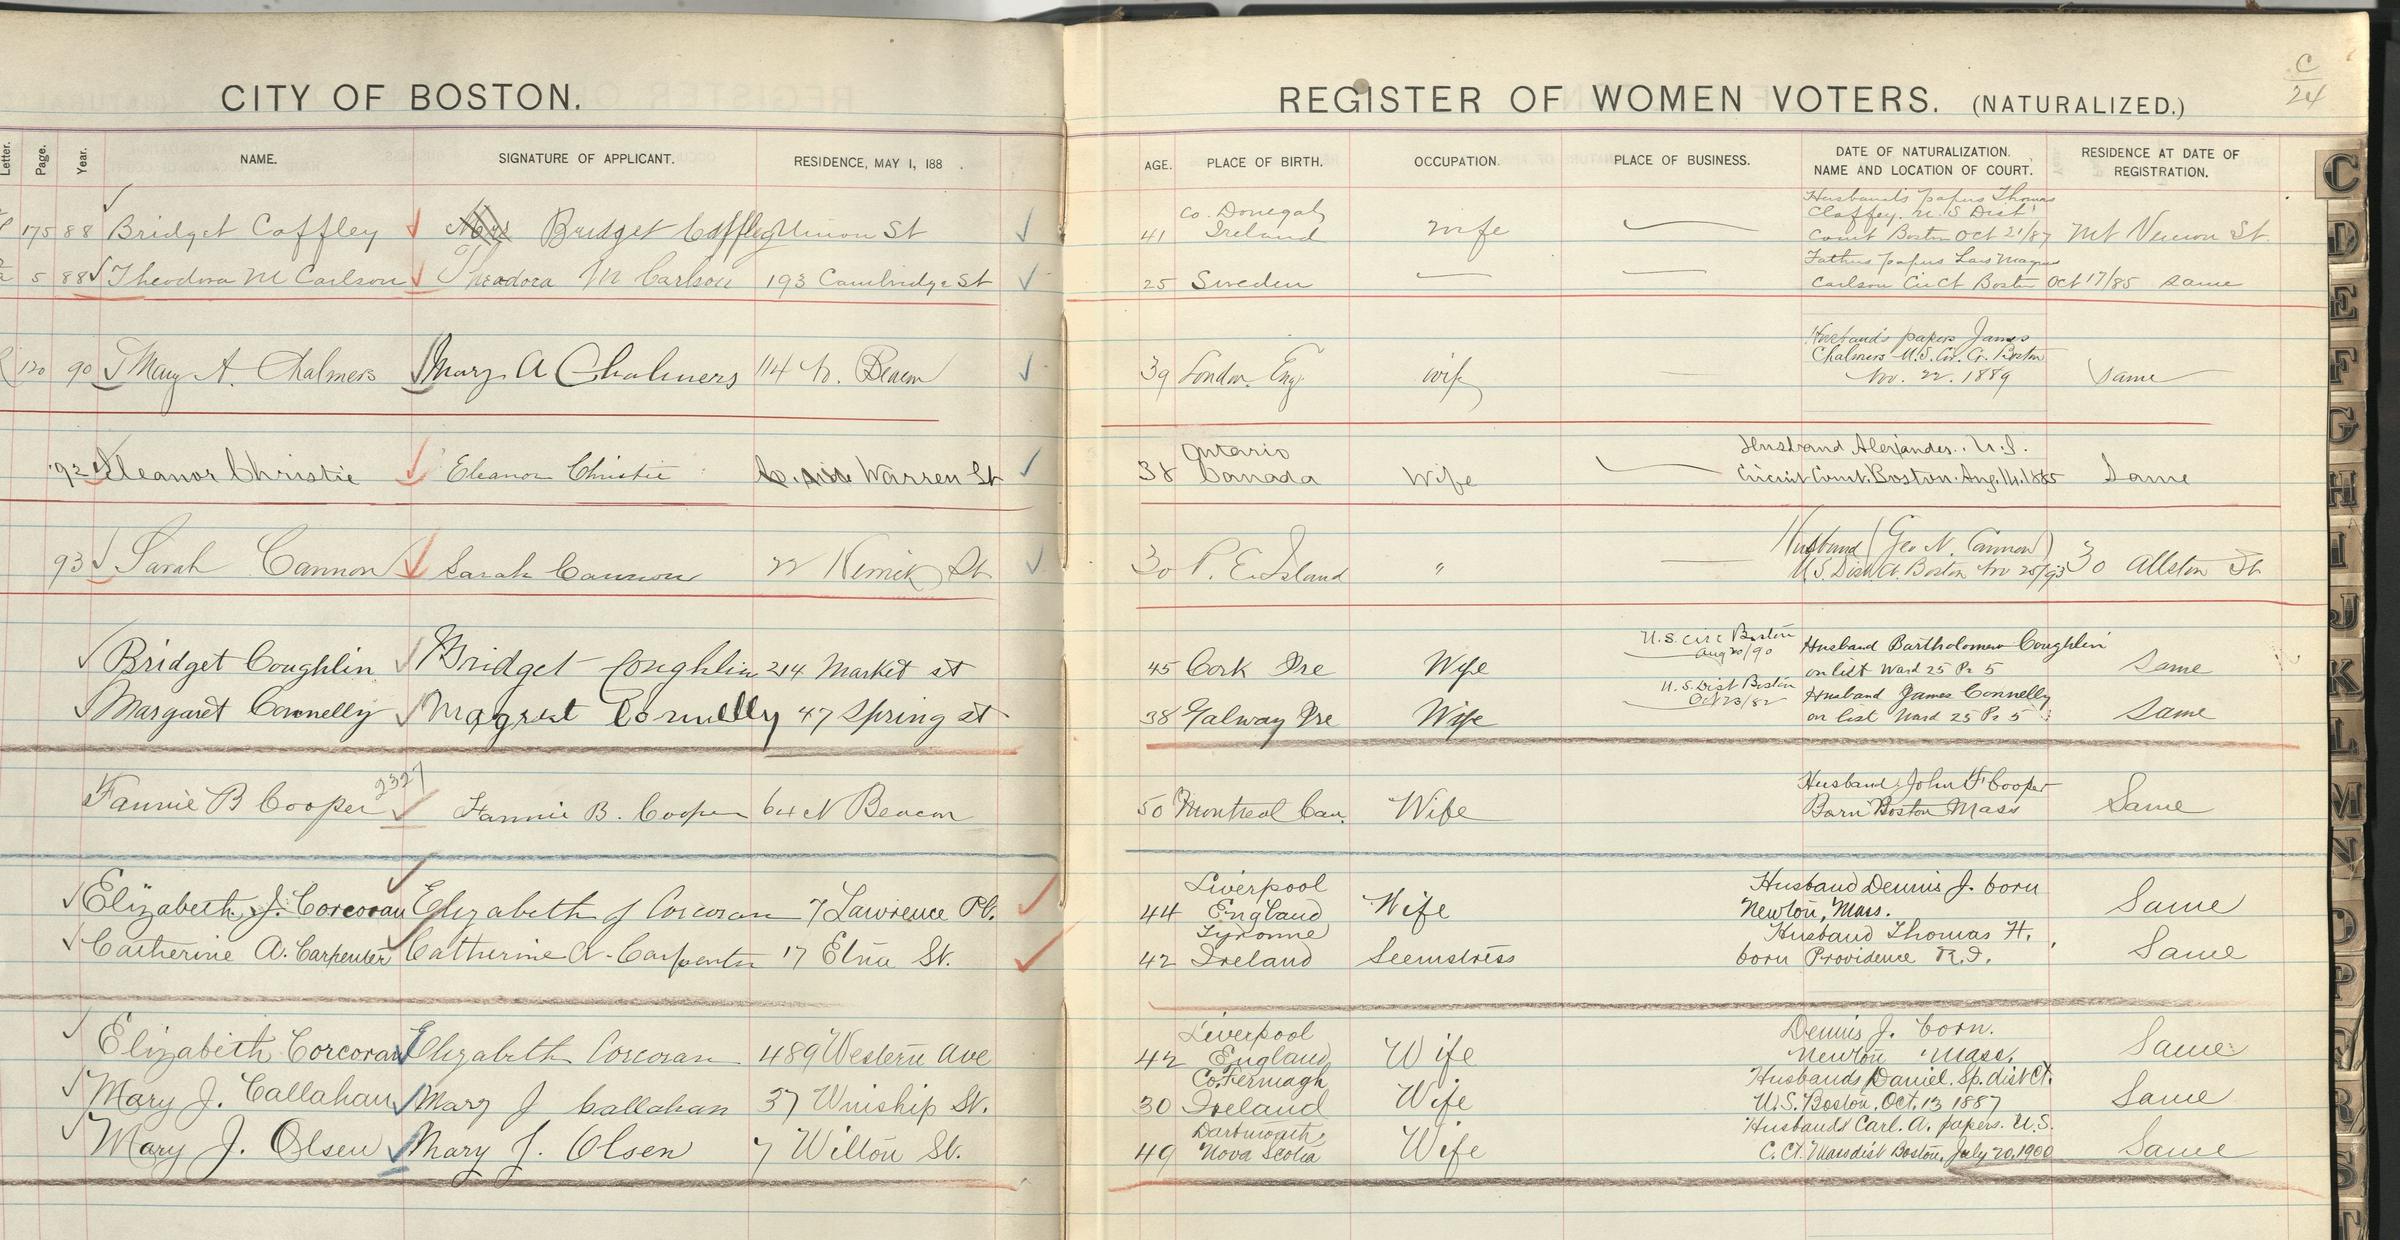 CITY OF BOSTON.
REGISTER OF WOMEN VOTERS. (NATURALIZED.)
C
24
Letter. Page. Year. NAME. SIGNATURE OF APPLICANT. RESIDENCE, MAY 1, 188 .
AGE. PLACE OF BIRTH. OCCUPATION. PLACE OF BUSINESS. DATE OF NATURALIZATION. NAME AND LOCATION OF COURT. RESIDENCE AT DATE OF REGISTRATION.
175 88 Bridget Caffley Bridget Caffley Union St 41 Co. Donegal Ireland wife Husband's papers Thomas
Claffey. U.S Dist
Court Boston Oct 21/87 Mt Vernon St
5 88 Theodora M Carlson Theodora M Carlson 193 Cambridge St 25 Sweden Fathers papers Lars Magnus
Carlson Cir Ct Boston Oct 17/85 same
120 90 Mary A. Chalmers Mary A Chalmers 114 N. Beacon 39 London. Eng. wife Husband's papers James
Chalmers U.S. Cir. Ct. Boston
Nov. 22. 1889 same
'92 Eleanor Christie Eleanor Christie Warren St 38 Ontario Canada Wife Husband Alexander. U.S.
Circuit Court. Boston. Aug. 14. 1885 Same
93 Sarah Cannon Sarah Cannon 22 St 30 P. E. Island " Husband (Geo N. Cannon)
U.S. Dist Ct. Boston Nov 25/93 30 Allston St
Bridget Coughlin Bridget Coughlin 214 Market st 45 Cork Ire Wife U.S. Circ Boston
Aug 20/90 Husband Bartholomew Coughlin
on list Ward 25 Pr 5 Same
Margaret Connelly Magret Connelly 47 Spring st 38 Galway Ire Wife U.S. Dist Boston
Oct 23/82 Husband James Connelly
on list Ward 25 Pr 5 Same
2327
Fannie B Cooper Fannie B. Cooper 64 N Beacon 50 Montreal Can. Wife Husband John F Cooper
Born Boston Mass Same
Elizabeth J. Corcoran Elizabeth J Corcoran 7 Lawrence Pl. 44 Liverpool England Wife Husband Dennis J. born
Newton, Mass. Same
Catherine A. Carpenter Catherine A. Carpenter 17 Etna St. 42 Tyronne Ireland Seemstress Husband Thomas H.
born Providence R.I. Same
Elizabeth Corcoran Elizabeth Corcoran 489 Western Ave 42 Liverpool England Wife Dennis J. born.
Newton Mass. Same
Mary J. Callahan Mary J Callahan 37 Winship St. 30 Co. Fermagh Ireland Wife Husbands Daniel. Sp. dist Ct.
U.S. Boston, Oct. 13 1887 Same
Mary J. Olsen Mary J. Olsen 7 Wilton St. 49 Dartmouth, Nova Scotia Wife Husband Carl. A. papers. U.S.
C. Ct. Mass dist Boston, July 20, 1900 Same
C
D
E
F
G
H
I
J
K
L
M
N
O
P
Q
R
S
T